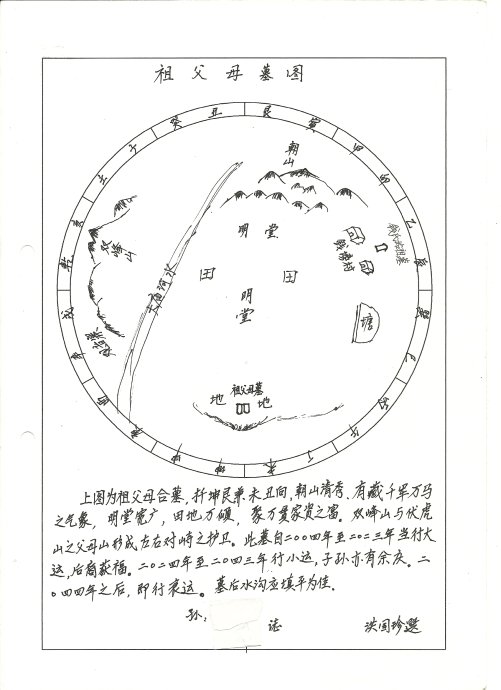 祖父母墓图
癸 丑 艮 寅 甲 卯 乙 辰 巽 巳 丙 午 丁 未 坤 申 庚 酉 辛 戌 乾 亥 壬 子
朝山
双峰山
大河水
明堂
田
田
明堂
塘
祖父母墓
地
地
上图为祖父母合墓,扦坤艮兼未丑向,朝山清秀、有藏千军万马
之气象,明堂宽广,田地万顷,聚万贯家资之富。双峰山与伏虎
山之父母山形成左右对峙之护卫。此墓自二〇〇四年至二〇二三年当行大
运,后裔获福。二〇二四年至二〇四三年行小运,子孙亦有余庆。二
〇四四年之后,即行衰运。墓后水沟应填平为佳.
孙:
洪国珍选